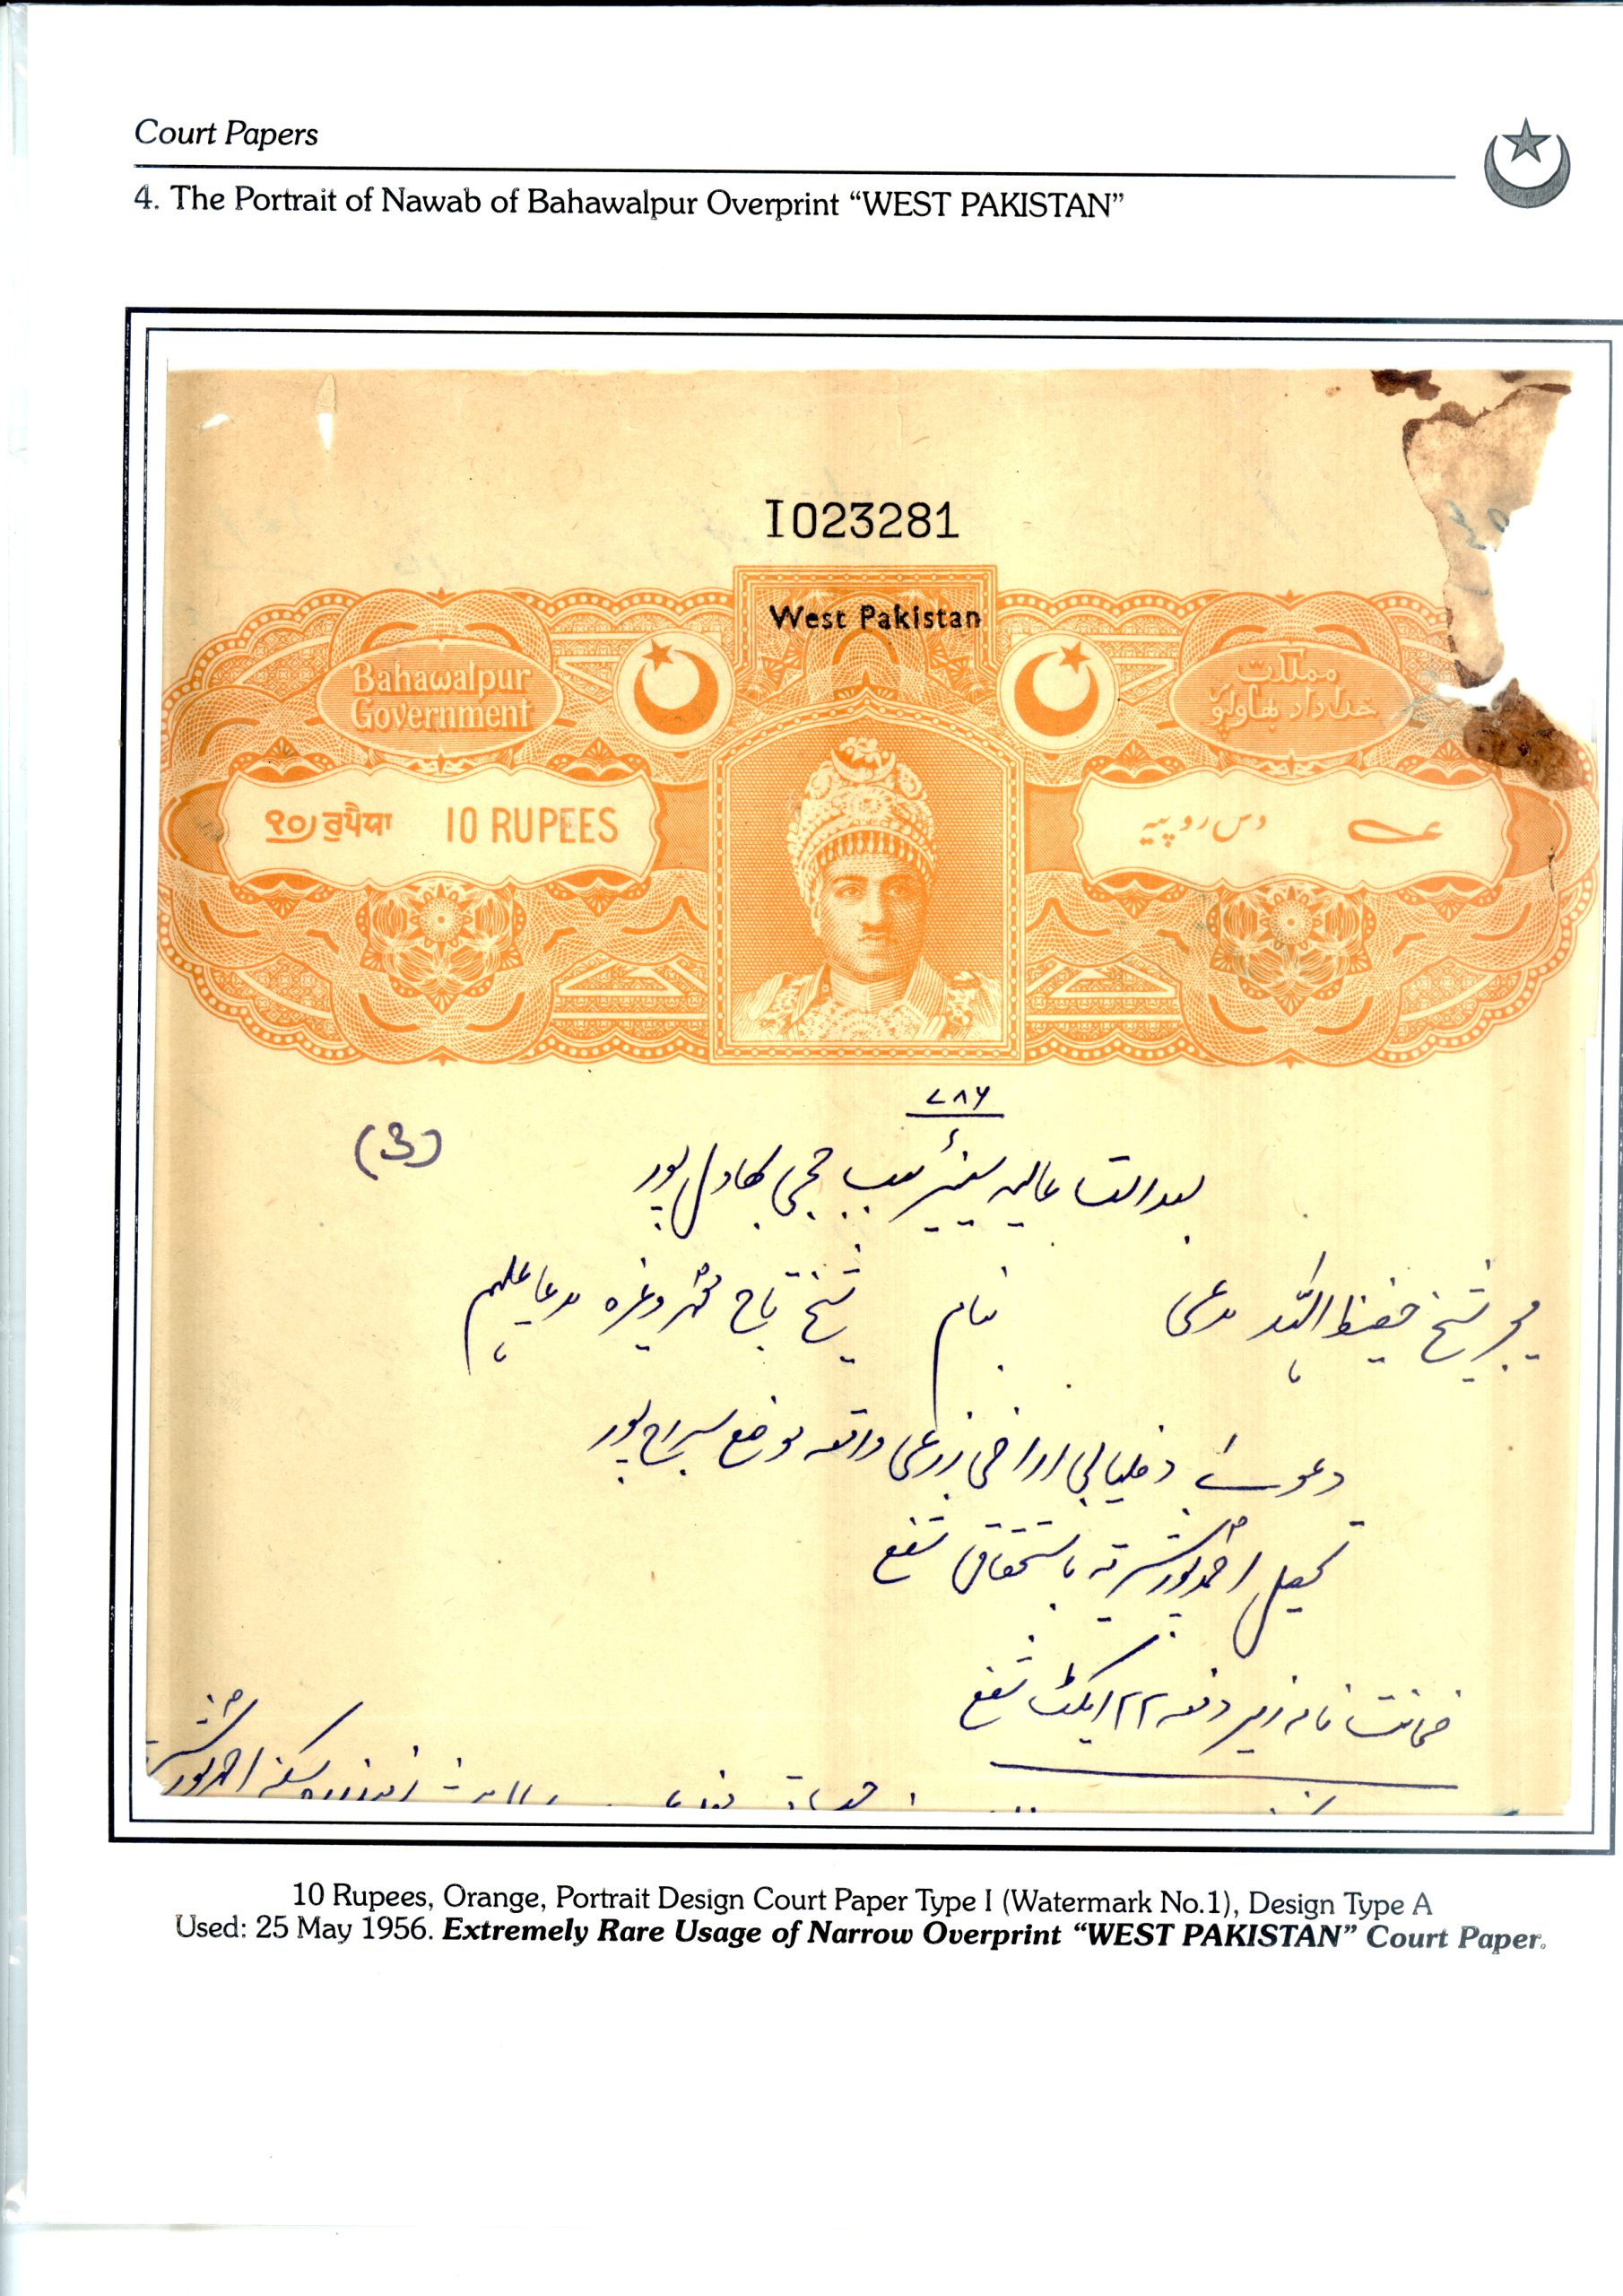 Court Papers
4. The Portrait of Nawab of Bahawalpur Overprint “WEST PAKISTAN”
I023281
West Pakistan
Bahawalpur
Government
مملکت
خداداد بھاولپور
१०) रुपैया 10 RUPEES
دس روپیہ
۷۸۶
(3)
بعدالت عالیہ سینئر سب ججی بھاولپور
میجر شیخ حفیظ اللہ مدعی بنام شیخ تاج محمد وغیرہ مدعا علیہم
دعویٰ دخلیابی اراضی زرعی واقعہ موضع سراج پور
تحصیل احمدپور شرقیہ باستحقاق شفع
ضمانت نامہ زیر دفعہ ۲۲ ایکٹ شفع
10 Rupees, Orange, Portrait Design Court Paper Type I (Watermark No.1), Design Type A
Used: 25 May 1956. Extremely Rare Usage of Narrow Overprint “WEST PAKISTAN” Court Paper.